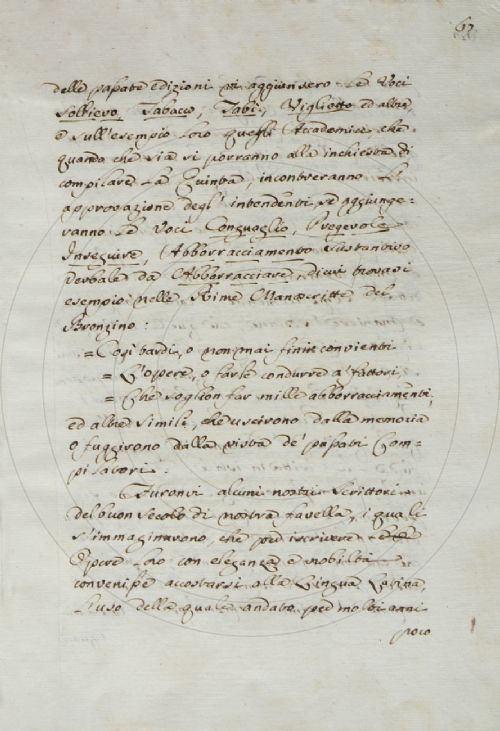 67
delle passate edizioni vi aggiunsero le Voci
Sollievo, Tabacco, Tabì, Viglietto ed altre,
e sull'esempio loro quegli Accademici, che
quando che sia si porranno alla inchiesta di
compilare la Quinta, incontreranno l'
approvazione degl' intendenti se aggiunge-
ranno le Voci Conguaglio, Pregevole
Inseguire, Abborracciamento sustantivo
verbale da Abborracciare, di cui trovasi
esempio nelle Rime Manoscritte del
Bronzino:
= Così tardi, o non mai finir convienti
= L'opere, o farle condurre a' fattori,
= Che soglion far mille abborracciamenti,
ed altre simili, che uscirono dalla memoria
o fuggirono dalla vista de' passati Com-
pilatori.
Furonvi alcuni nostri Scrittori
del buon Secolo di nostra favella, i quali
s'immaginavono, che per iscrivere le
Opere loro con eleganza e nobiltà
convenisse accostarsi alla Lingua Latina,
l'uso della quale andato per molti anni
poco